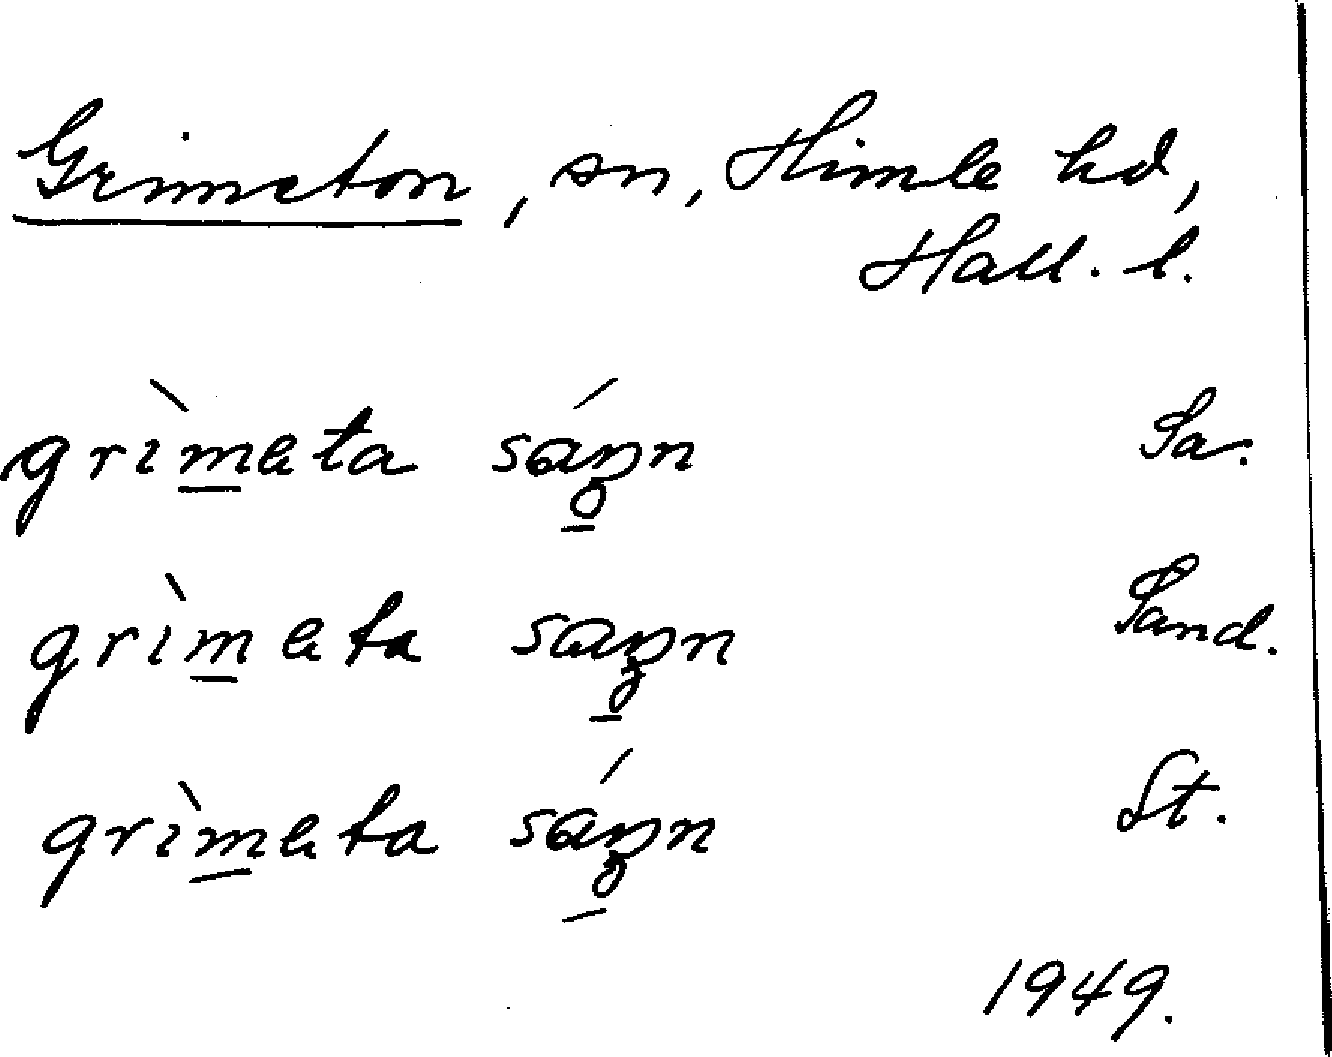 Grimeton, sn, Himle hd,
Hall. l.
grìmeta sáŋn Sa.
grìmeta saŋn Sand.
grìmeta sáŋn St.
1949.